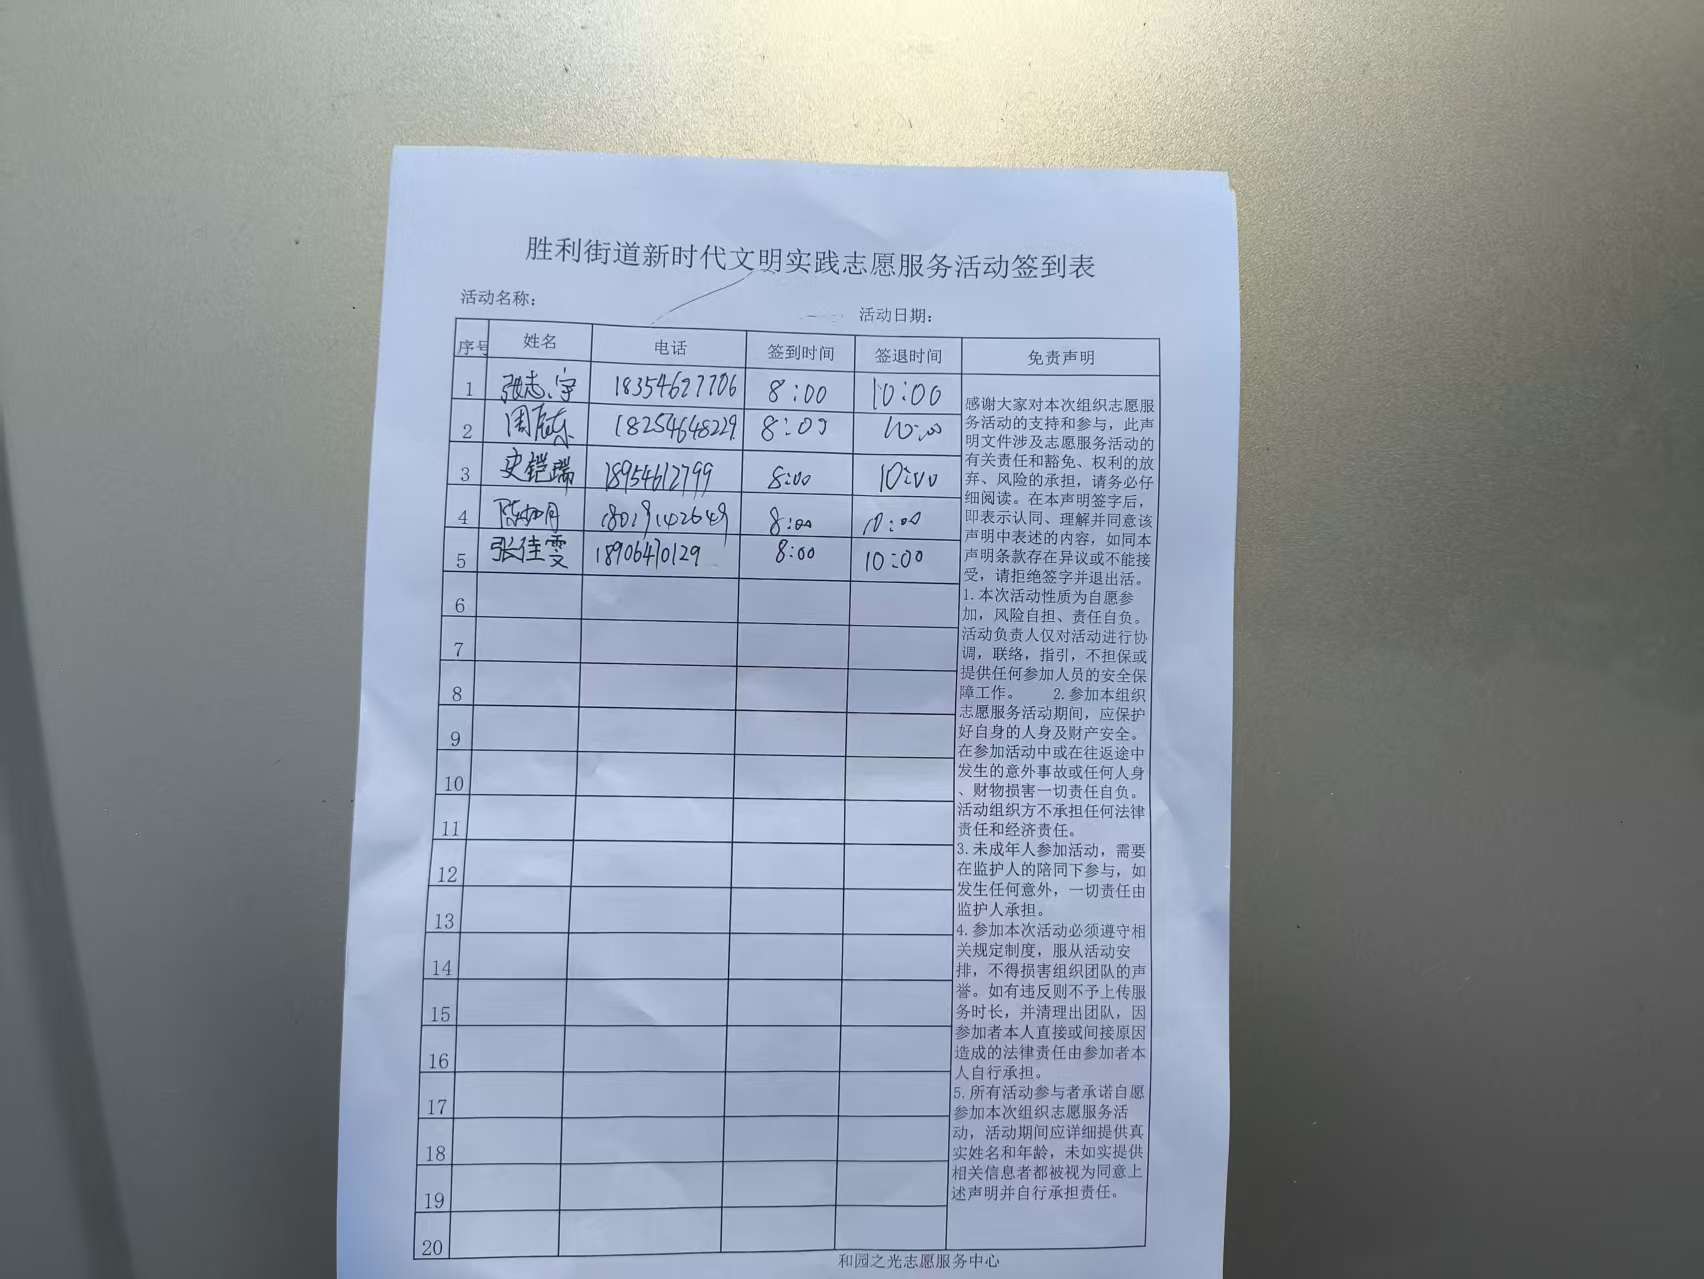 胜利街道新时代文明实践志愿服务活动签到表
活动名称：
活动日期：
序号 姓名 电话 签到时间 签退时间 免责声明
1 张志宇 18354627706 8:00 10:00
2 周 18254648229 8:00 10:00
3 史铠瑞 18954612799 8:00 10:00
4 陈如月 8:00 10:00
5 张佳雯 18906470129 8:00 10:00
6
7
8
9
10
11
12
13
14
15
16
17
18
19
20
感谢大家对本次组织志愿服
务活动的支持和参与，此声
明文件涉及志愿服务活动的
有关责任和豁免、权利的放
弃、风险的承担，请务必仔
细阅读。在本声明签字后，
即表示认同、理解并同意该
声明中表述的内容，如同本
声明条款存在异议或不能接
受，请拒绝签字并退出活。
1.本次活动性质为自愿参
加，风险自担、责任自负。
活动负责人仅对活动进行协
调，联络，指引，不担保或
提供任何参加人员的安全保
障工作。 2.参加本组织
志愿服务活动期间，应保护
好自身的人身及财产安全。
在参加活动中或在往返途中
发生的意外事故或任何人身
、财物损害一切责任自负。
活动组织方不承担任何法律
责任和经济责任。
3.未成年人参加活动，需要
在监护人的陪同下参与，如
发生任何意外，一切责任由
监护人承担。
4.参加本次活动必须遵守相
关规定制度，服从活动安
排，不得损害组织团队的声
誉。如有违反则不予上传服
务时长，并清理出团队，因
参加者本人直接或间接原因
造成的法律责任由参加者本
人自行承担。
5.所有活动参与者承诺自愿
参加本次组织志愿服务活
动，活动期间应详细提供真
实姓名和年龄，未如实提供
相关信息者都被视为同意上
述声明并自行承担责任。
和园之光志愿服务中心